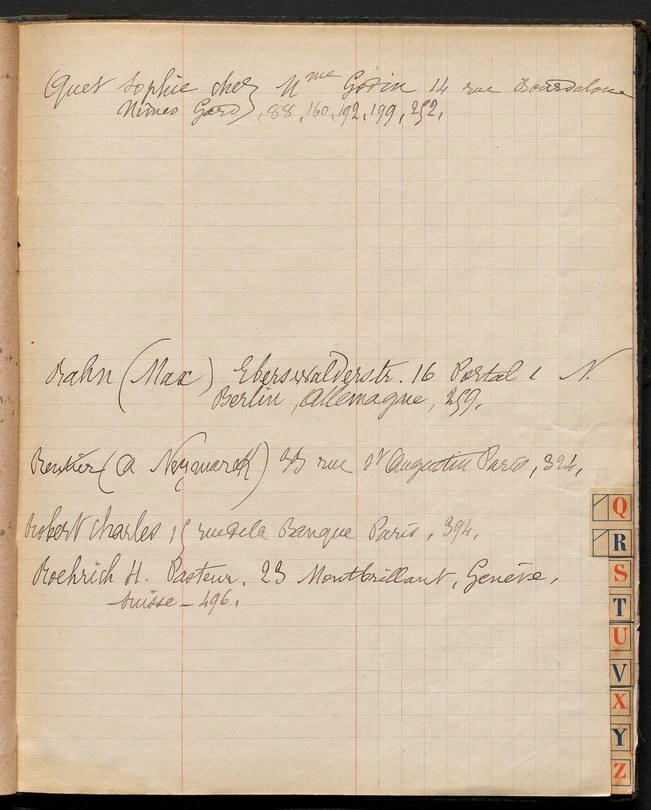 Quet Sophie chez Mme Godin 14 rue Bourdaloue
Nîmes Gard, 88, 160, 192, 199, 252.
Rahn (Max) Eberswalderstr. 16 Portal 1 N.
Berlin, Allemagne, 259.
Rentier (A Neymarck) 33 rue St Augustin Paris, 324,
Robert Charles 15 rue de la Banque Paris, 394.
Roehrich H. Pasteur, 23 Montbrillant, Genève,
Suisse – 496.
Q
R
S
T
U
V
X
Y
Z